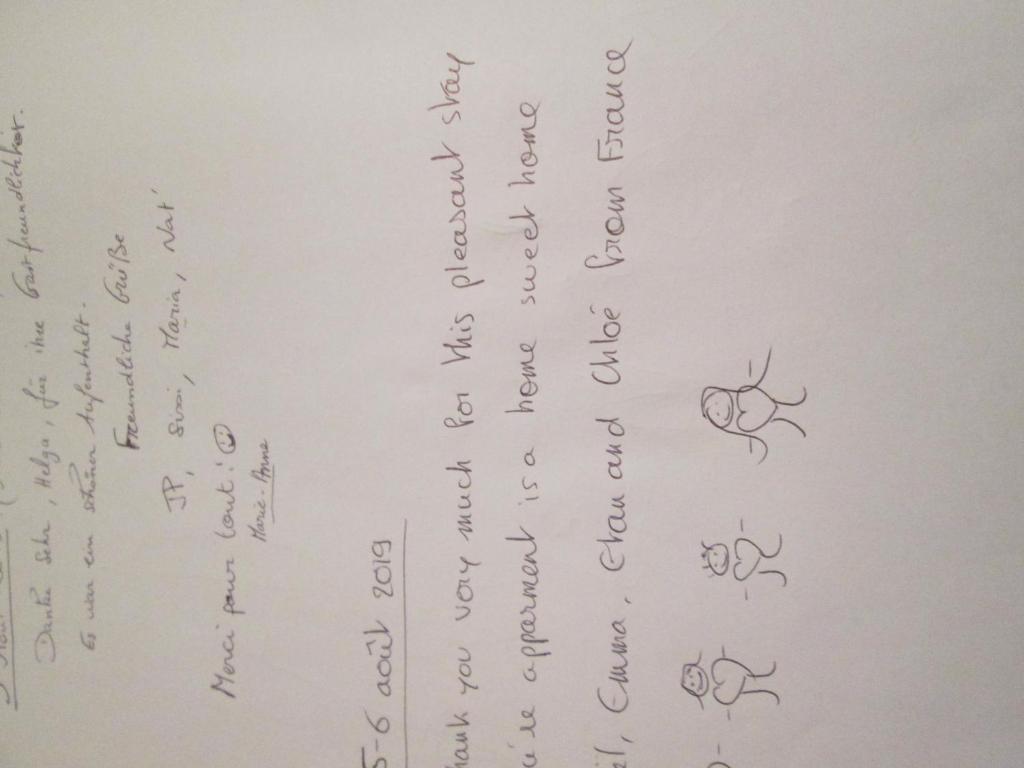 Danke sehr, Helga, für ihre Gastfreundlichkeit.
Es war ein schöner Aufenthalt.
Freundliche Grüße
JP, Maria, Nat'
Merci pour tout! ☺
Marie-Anne
5-6 août 2019
hank you very much for this pleasant stay
apparment is a home sweet home
Emma, Ethan and Chloé from France